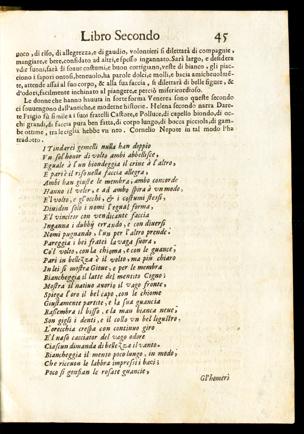 Libro Secondo 45
poco, di riso, di allegrezza, e di gaudio, volontieri si dilettarà di compagnie,
mangiare, e bere, confidato ad altri, e spesso ingannato. Sarà largo, e desidera
di suoni, sarà di soaui costumi, e buon cortigiano, veste di bianco, gli piac-
ciono i sapori ontosi, beneuolo, ha parole dolci, e molli, e bocia amicheuolmẽ-
te, attende assai al suo corpo, & alla sua faccia, si dilettarà di belle figure, &
d'odori, facilmente inchinato al piangere, e perciò misericordioso.
Le donne che hanno hauuta in sorte forma Venerea sono queste secondo
ci souuengono dall'antiche, e moderne historie. Helena secondo narra Dare-
te Frigio fù simile a i suoi fratelli Castore, e Polluce, di capello biondo, di oc-
chi grandi, di faccia pura ben fatta, di corpo lungo, di bocca piccola, di gam-
be ottime, tra le ciglia hebbe vn neo. Cornelio Nepote in tal modo l'ha
tradotto.
I Tindarei gemelli nulla han doppio
Vn sol honor di volto ambi abbellisce,
Eguale à l'un biondeggia il crine à l'altro,
E par'è il riso nella faccia allegra,
Ambi han giuste le membra, ambo concorde
Hanno il veler, e ad ambo spira à vn modo,
E'l volto, e gl'occhi, & i costumi stessi,
Diuidon solo i nomi l'egual forma,
E'l vincitor con vendicante faccia
Inganna i dubbij errando, e con diuersi
Nomi pugnando, l'un per l'altro prende;
Pareggia i bei fratei la vaga suora,
Co'l volto, con la chioma, e con le guance;
Pari in bellezza è il volto, ma più chiaro
In lei si mostra Gioue, e per le membra
Biancheggia il latte del mentito Cigno;
Mostra il natiuo auorio il vago fronte,
Spiega l'oro il bel capo, con le chiome
Giustamente partite, e la sua guancia
Rassembra il bisso, e la man bianca neue;
Son gigli i denti, e il collo vn bel ligustro,
L'orecchia crespa con continuo giro
E'l naso cacciator del vago odore
Ciascun dimanda di bellezza il vanto.
Biancheggia il mento poco lungo, in modo,
Che riceuon le labbra impressi i baci;
Poco si gonfian le rosate guancie,
Gl'homeri